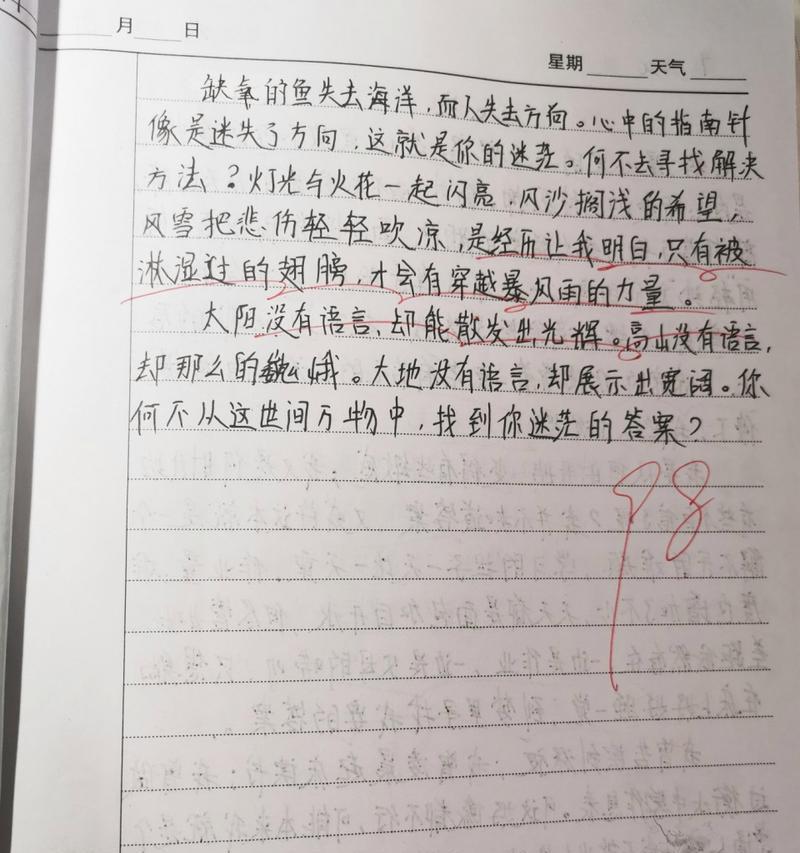 月 日
星期 天气
缺氧的鱼失去海洋，而人失去方向。心中的指南针
像是迷失了方向，这就是你的迷茫。何不去寻找解决
方法？灯光与火花一起闪亮，风沙搁浅的希望，
风雪把悲伤轻轻吹凉，是经历让我明白，只有被
淋湿过的翅膀，才会有穿越暴风雨的力量。
太阳没有语言，却能散发出光辉。高山没有语言，
却那么的巍峨。大地没有语言，却展示出宽阔。你
何不从这世间万物中，找到你迷茫的答案？
98